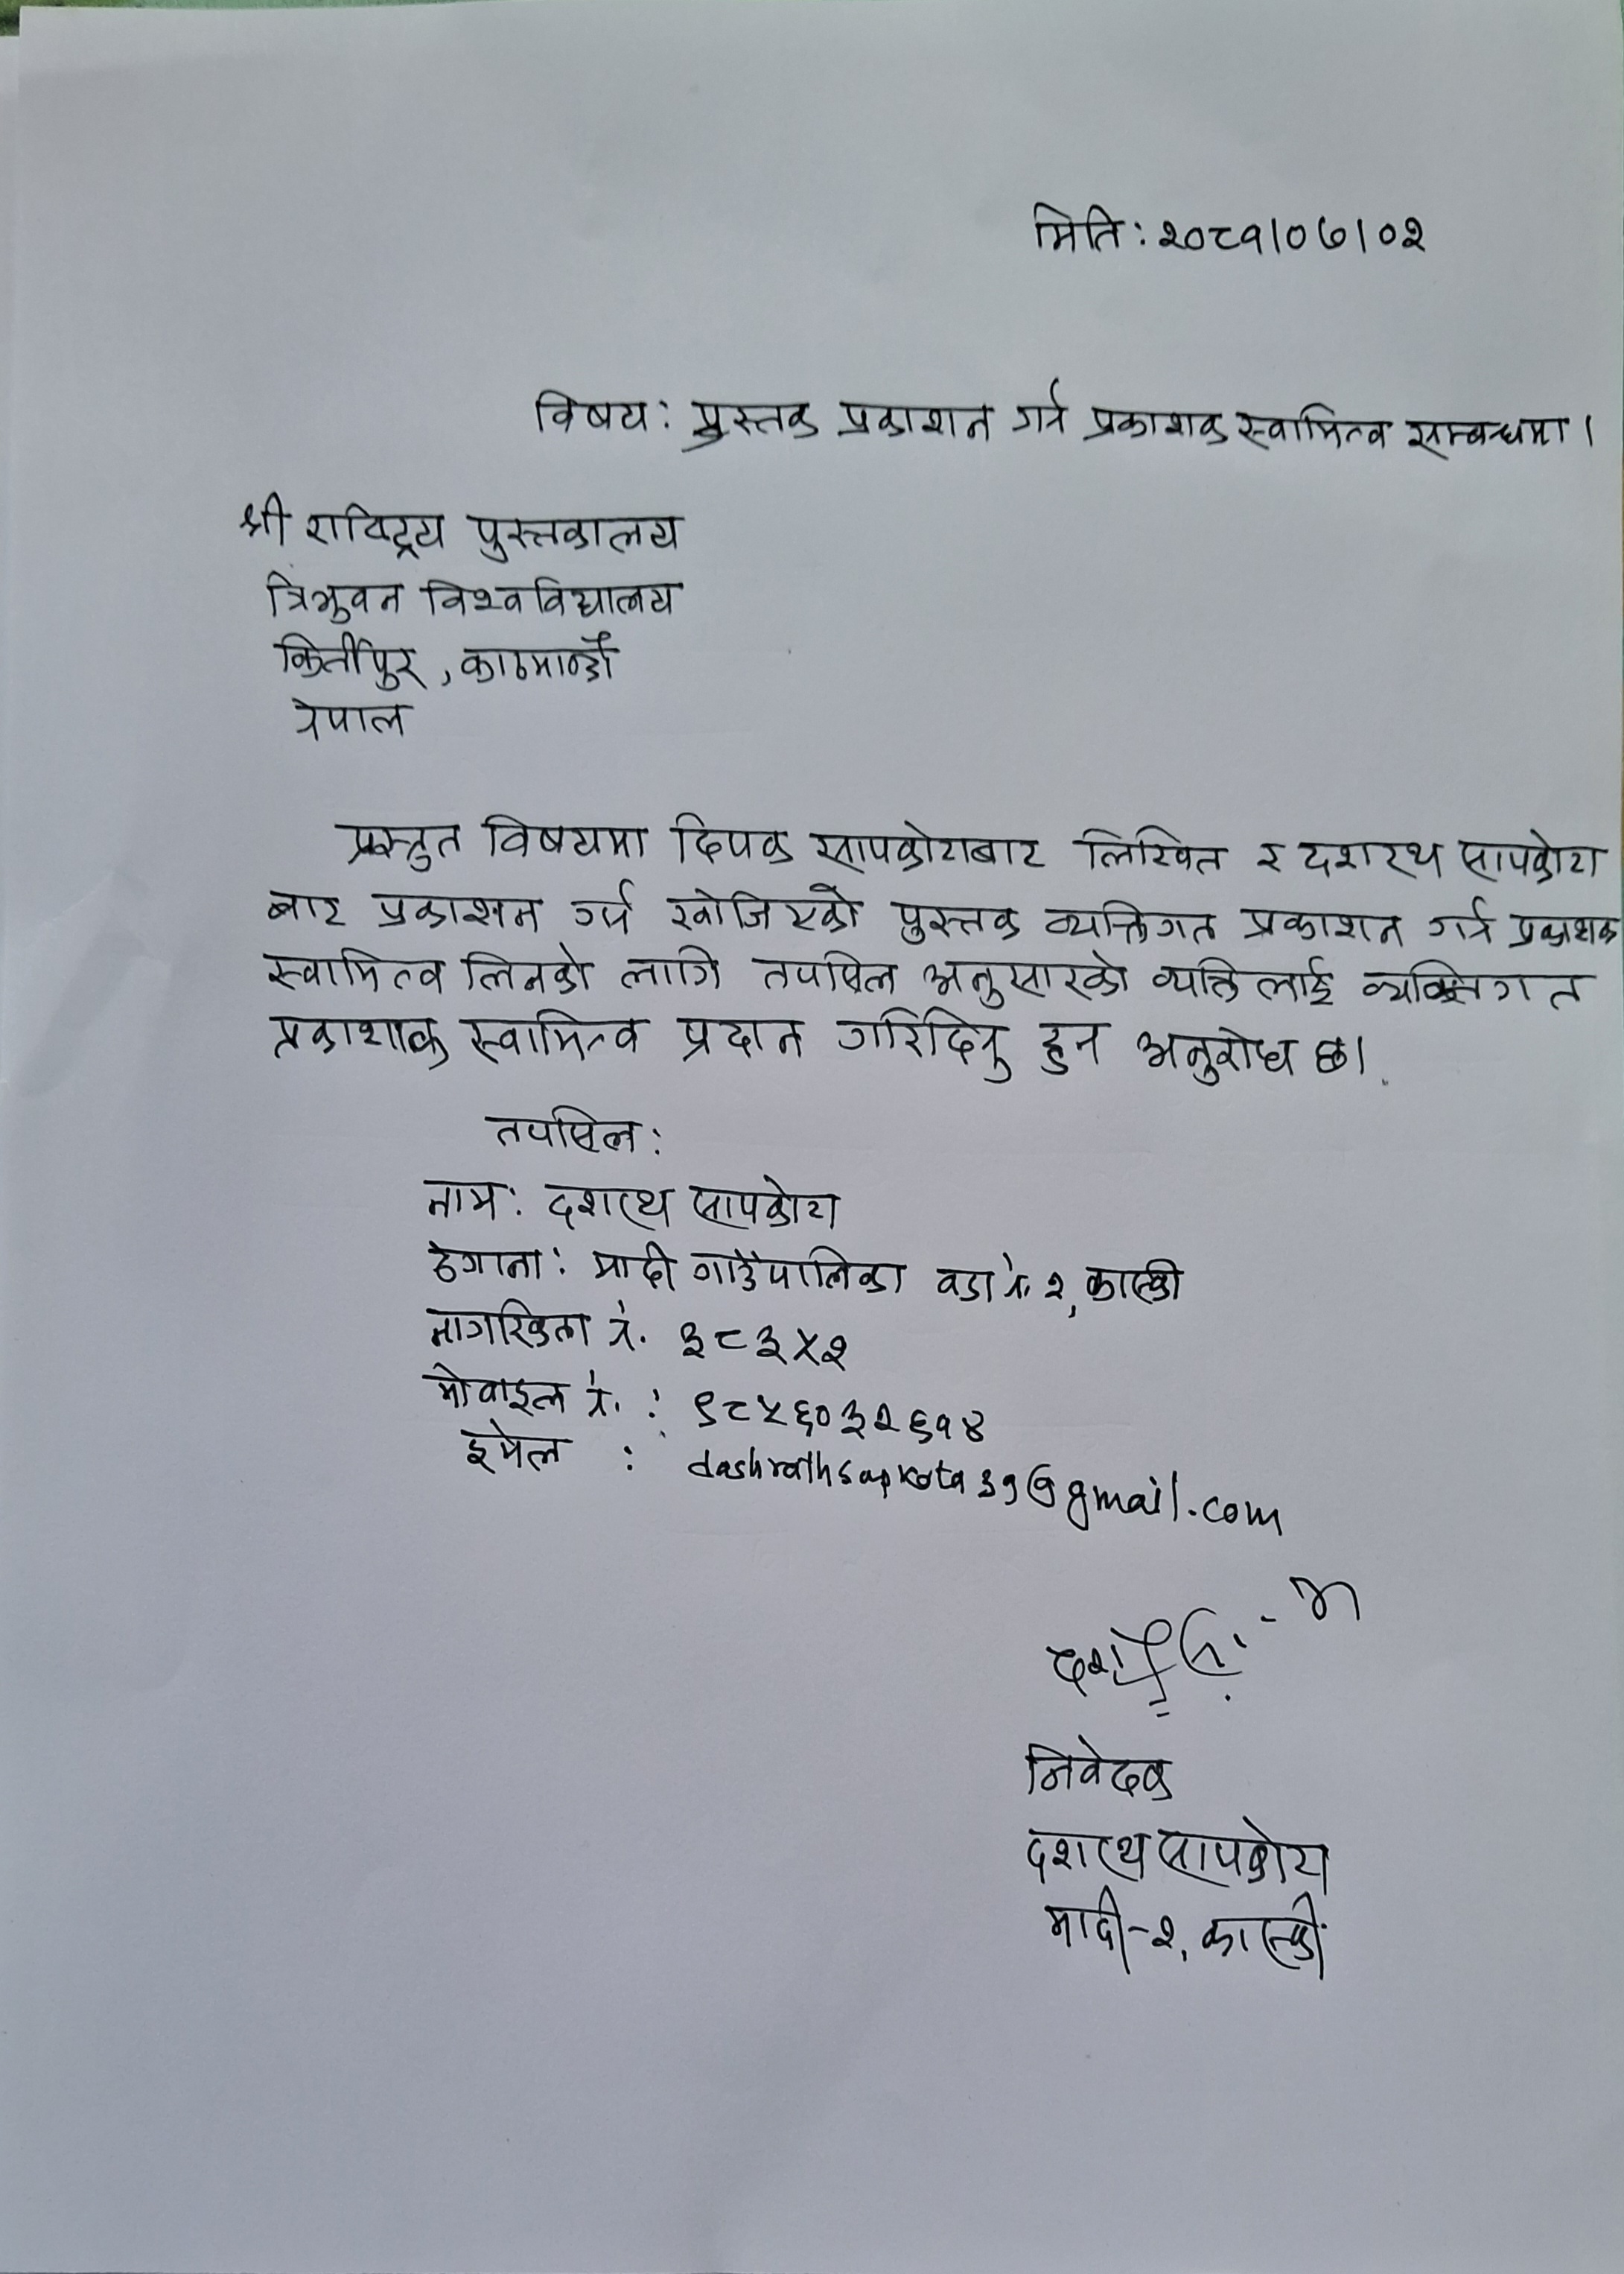 मिति: २०८१।०७।०२
विषय: पुस्तक प्रकाशन गर्न प्रकाशक स्वामित्व सम्बन्धमा।
श्री राष्ट्रिय पुस्तकालय
त्रिभुवन विश्वविद्यालय
किर्तीपुर, काठमाण्डौं
नेपाल
प्रस्तुत विषयमा दिपक सापकोटाबाट लिखित र दशरथ सापकोटा
बाट प्रकाशन गर्न खोजिएको पुस्तक व्यक्तिगत प्रकाशन गर्न प्रकाशक
स्वामित्व लिनको लागि तपसिल अनुसारको व्यक्तिलाई व्यक्तिगत
प्रकाशक स्वामित्व प्रदान गरिदिनु हुन अनुरोध छ।
तपसिल:
नाम: दशरथ सापकोटा
ठेगाना: मादी गाउँपालिका वडा नं. २, कास्की
नागरिकता नं. ३८३५२
मोवाइल नं. : ९८५६०३२६१४
इमेल : dashrathsapkota39@gmail.com
निवेदक
दशरथ सापकोटा
मादी-२, कास्की